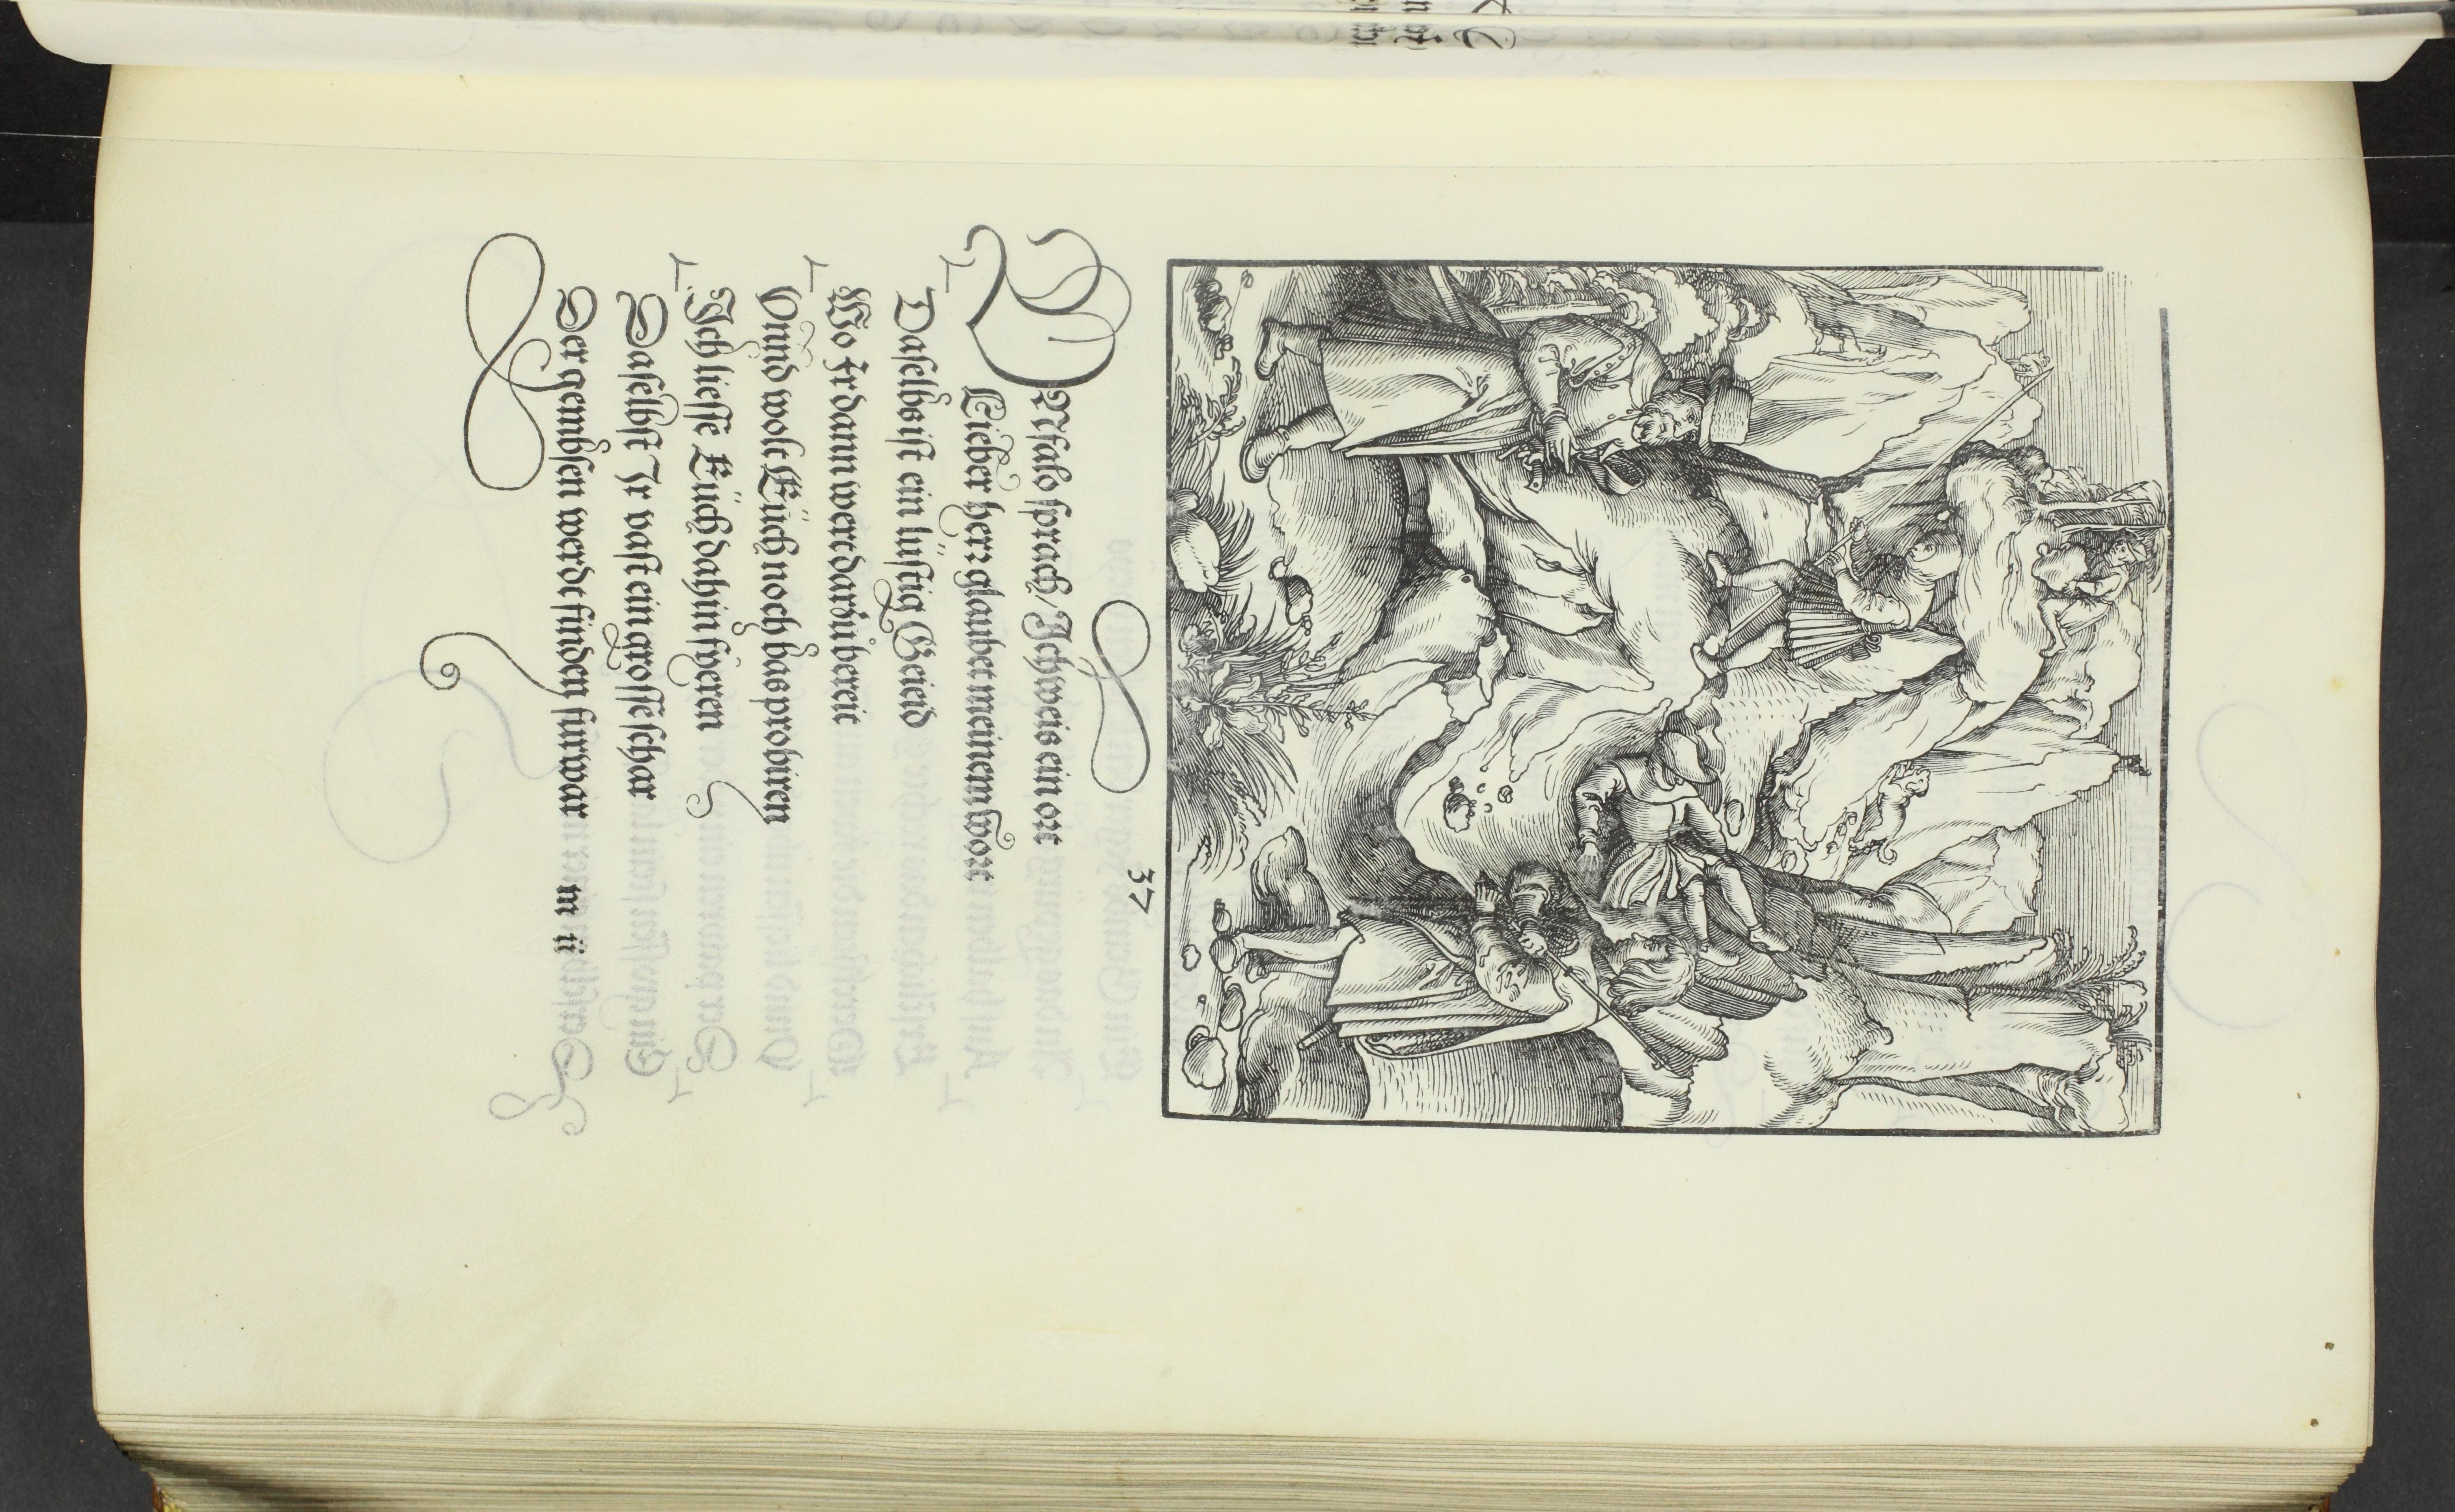 37
VNfalo sprach / Ich weis ein ort
Lieber herr glaubet meinem wort
Daselbs ist ein lüstig Geieid
Wo Ir dann weret darzů bereit
Vnnd wolt Eüch noch bas probiren
Ich liesse Eüch dahin fueren
Daselbst Ir vast ein grosse schar
Der gembsen werdt finden fürwar
m ii